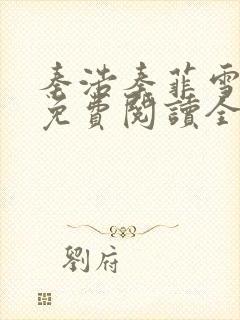 秦浩秦菲雪
免費閱讀全
劉府